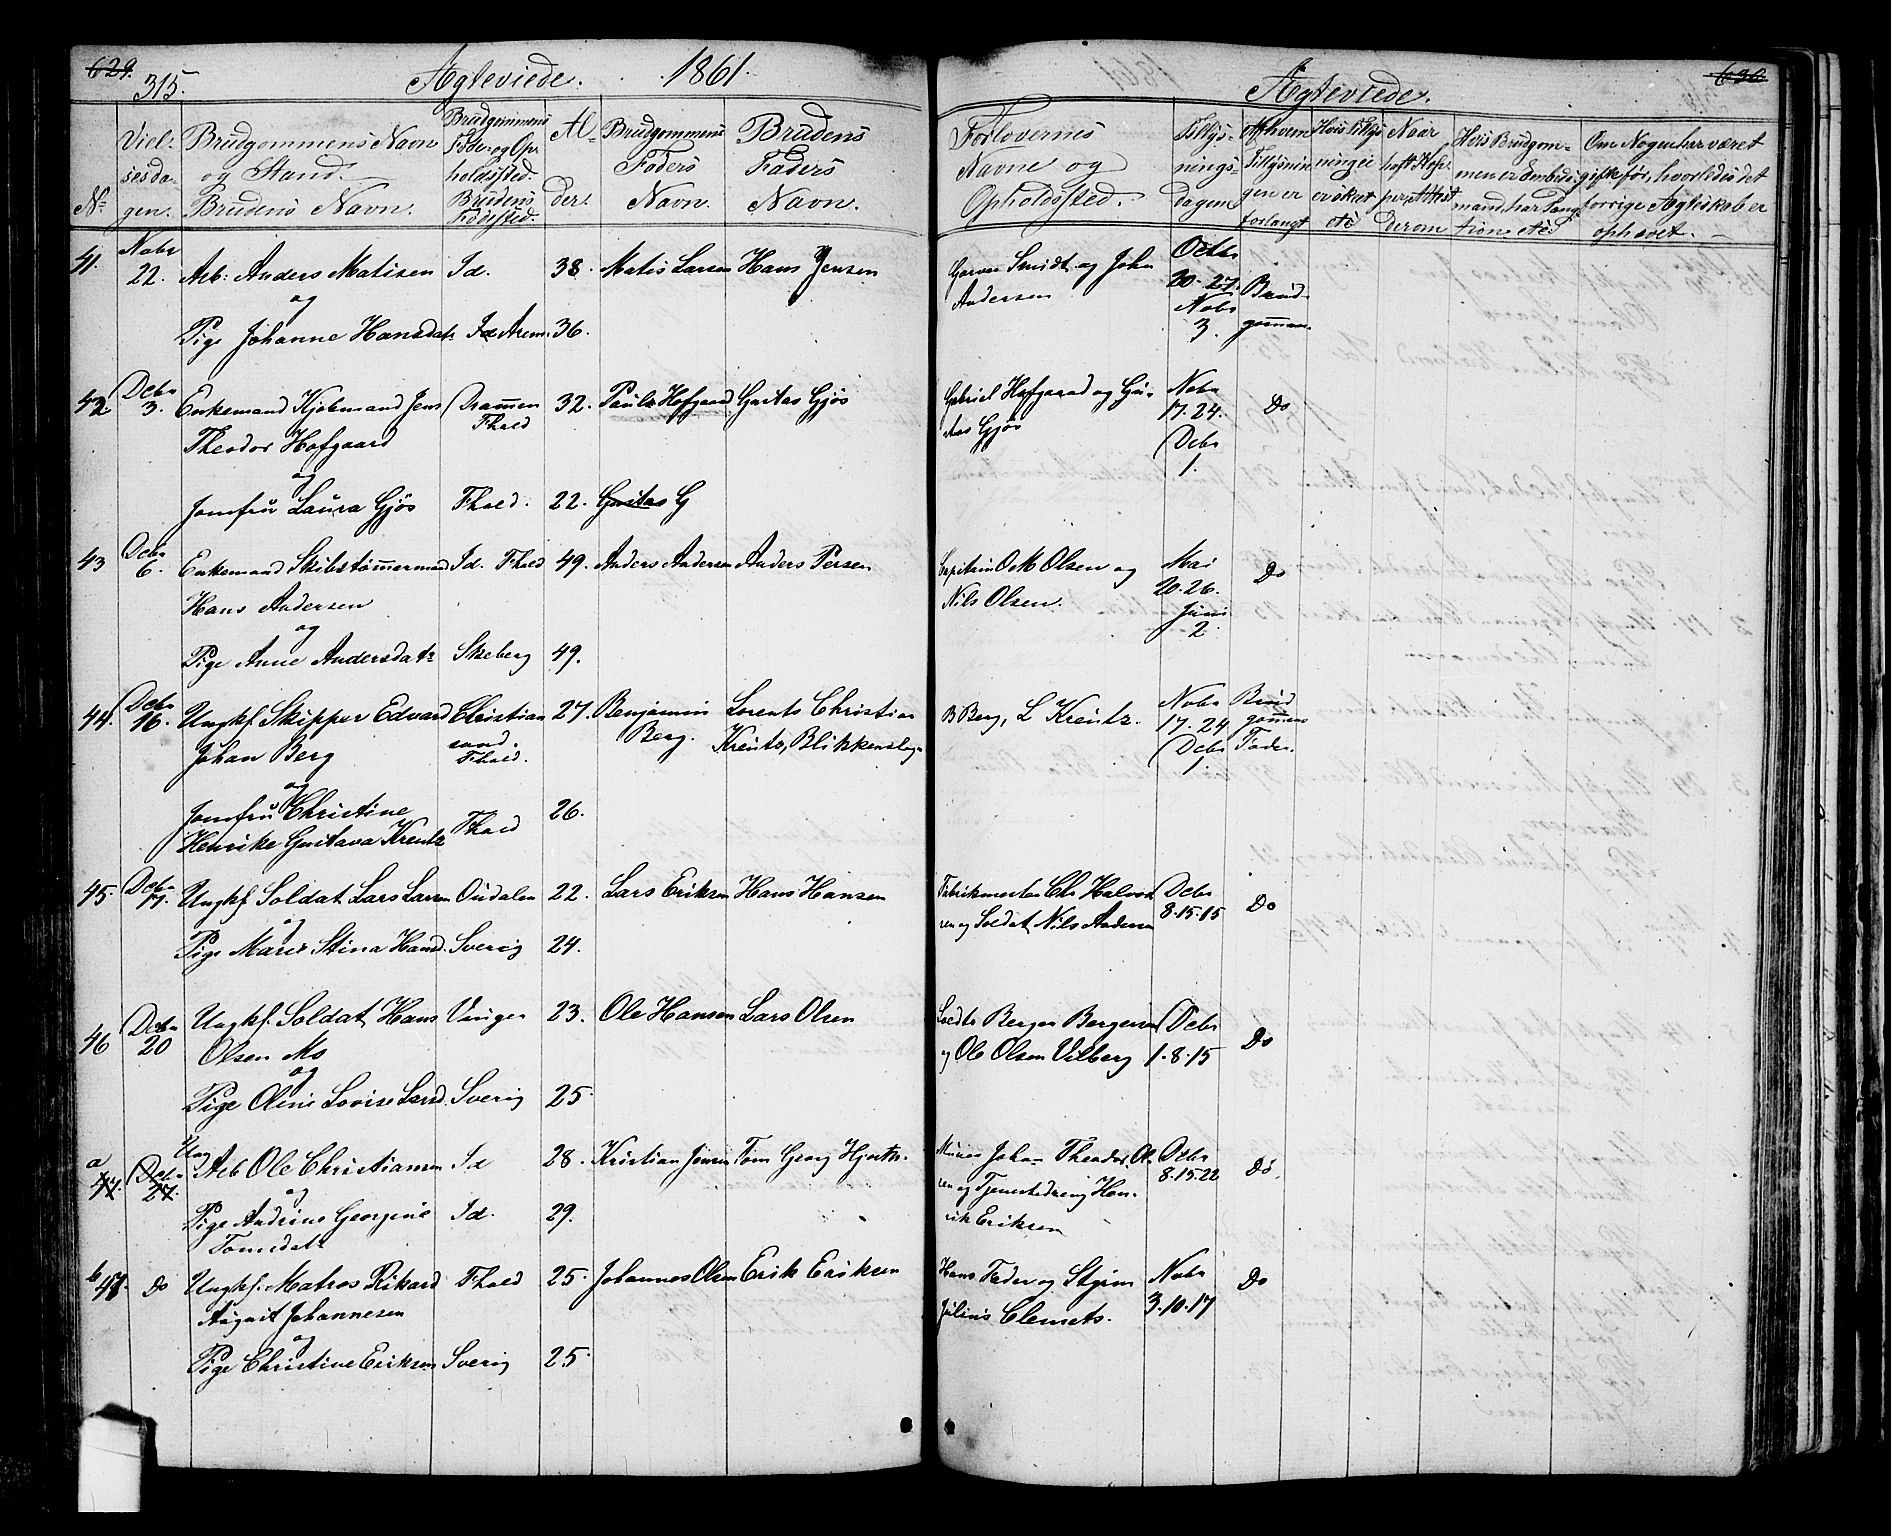 629.
315. Ægteviede. 1861.
No
Vielsesdagen.
Brudgommens Navn og Stand.
Brudens Navn.
Brudgommens Føde- og Opholdssted.
Brudens Fødested.
Alder.
Brudgommens Faders Navn.
Brudens Faders Navn.
41. Novbr 22. Arb: Anders Matisen Id. 38. Matis Larsen Hans Jensen
og
Pige Johanne Hansdatr Id 36.
42 Decbr 3. Enkemand Kjøbmand Jens Drammen Fhald 32. Paul Hofgaard Gustav Gjøs
Theodor Hofgaard
og
Jomfru Laura Gjøs Fhald. 22. Gustav G
43 Decbr 6. Enkemand Skibstømmermand Id. Fhald 49. Anders Andersen Anders Persen
Hans Andersen
og
Pige Anne Andersdatr Skeberg 49.
44. Decbr 16. Ungkf Skipper Edvard Christiansand. Fhald. 27. Benjamin Berg. Lorents Christian Krentz, Blikkenslag-
Johan Berg
og
Jomfru Christine Fhald 26.
Henrike Gustava Krentz
45. Decbr 17. Ungkf Soldat Lars Larsen Oudalen 22. Lars Eriksen Hans Hansen
og
Pige Marie Stina Hansd. Sverig 24.
46 Decbr 20 Ungkf. Soldat Hans Vinger 23. Ole Hansen Lars Olsen
Olsen Mo
og
Pige Oline Lovise Larsd. Sverig 25.
a 47. Decbr 27. Ung
Arb Ole Christiansen Id 28. Kristian Jensen Tom Georg Hjorth.
og
Pige Andrine Georgine Id. 29.
Tomsdatr
b 47. Do Ungkf. Matros Rikard Fhald 25. Johannes Olsen Erik Eriksen
August Johannesen
og
Pige Christine Eriksen Sverig 25.
630
Ægteviede.
Forlovernes Navne og Opholdssted.
Tillysningsdagen
Af hvem Tillysningen er forlangt
Hvis Tillysningen er skeet
Naar
Hvis Brudgommen er Embedsmand, har
Om Nogen har været gift før, hvorledes det forrige Ægteskab er ophævet.
Garver Smidt og Johan Octbr
Andersen 20-27. Novbr 3. Brudgommen.
Gabriel Hofgaard og Gustav Gjøs Novbr 17. 24. Decbr 1. Do
Capitain O M Olsen og Mai
Nils Olsen. 20. 26. Juni 2. Do
B Berg, L Krentz. Novbr 17. 24 Decbr 1. Brudgommens Fader.
Fabrikmester Chr Halvorsen og Soldat Nils Andersen Decbr 8. 15. 15 Do
Berger Bergersen Decbr
og Ole Olsen Vilberg 1. 8. 15 Do
Murer Johan Theodor Olsen og Tjenestedreng Henrik Eriksen Decbr 8. 15. 22 Do.
Hans Fader og Julius Clemets. Novbr 3. 10. 17 Do